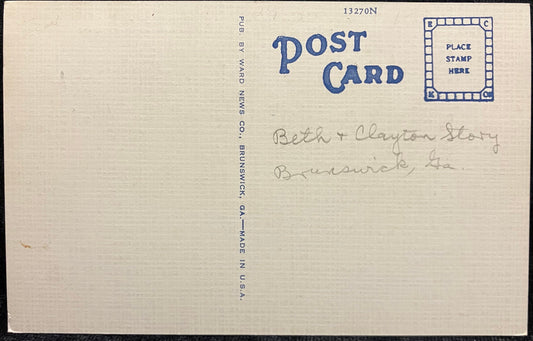 13270N
POST
CARD
E C
PLACE
STAMP
HERE
K Co
PUB. BY WARD NEWS CO., BRUNSWICK, GA.—MADE IN U.S.A.
Beth + Clayton Story
Brunswick, Ga.